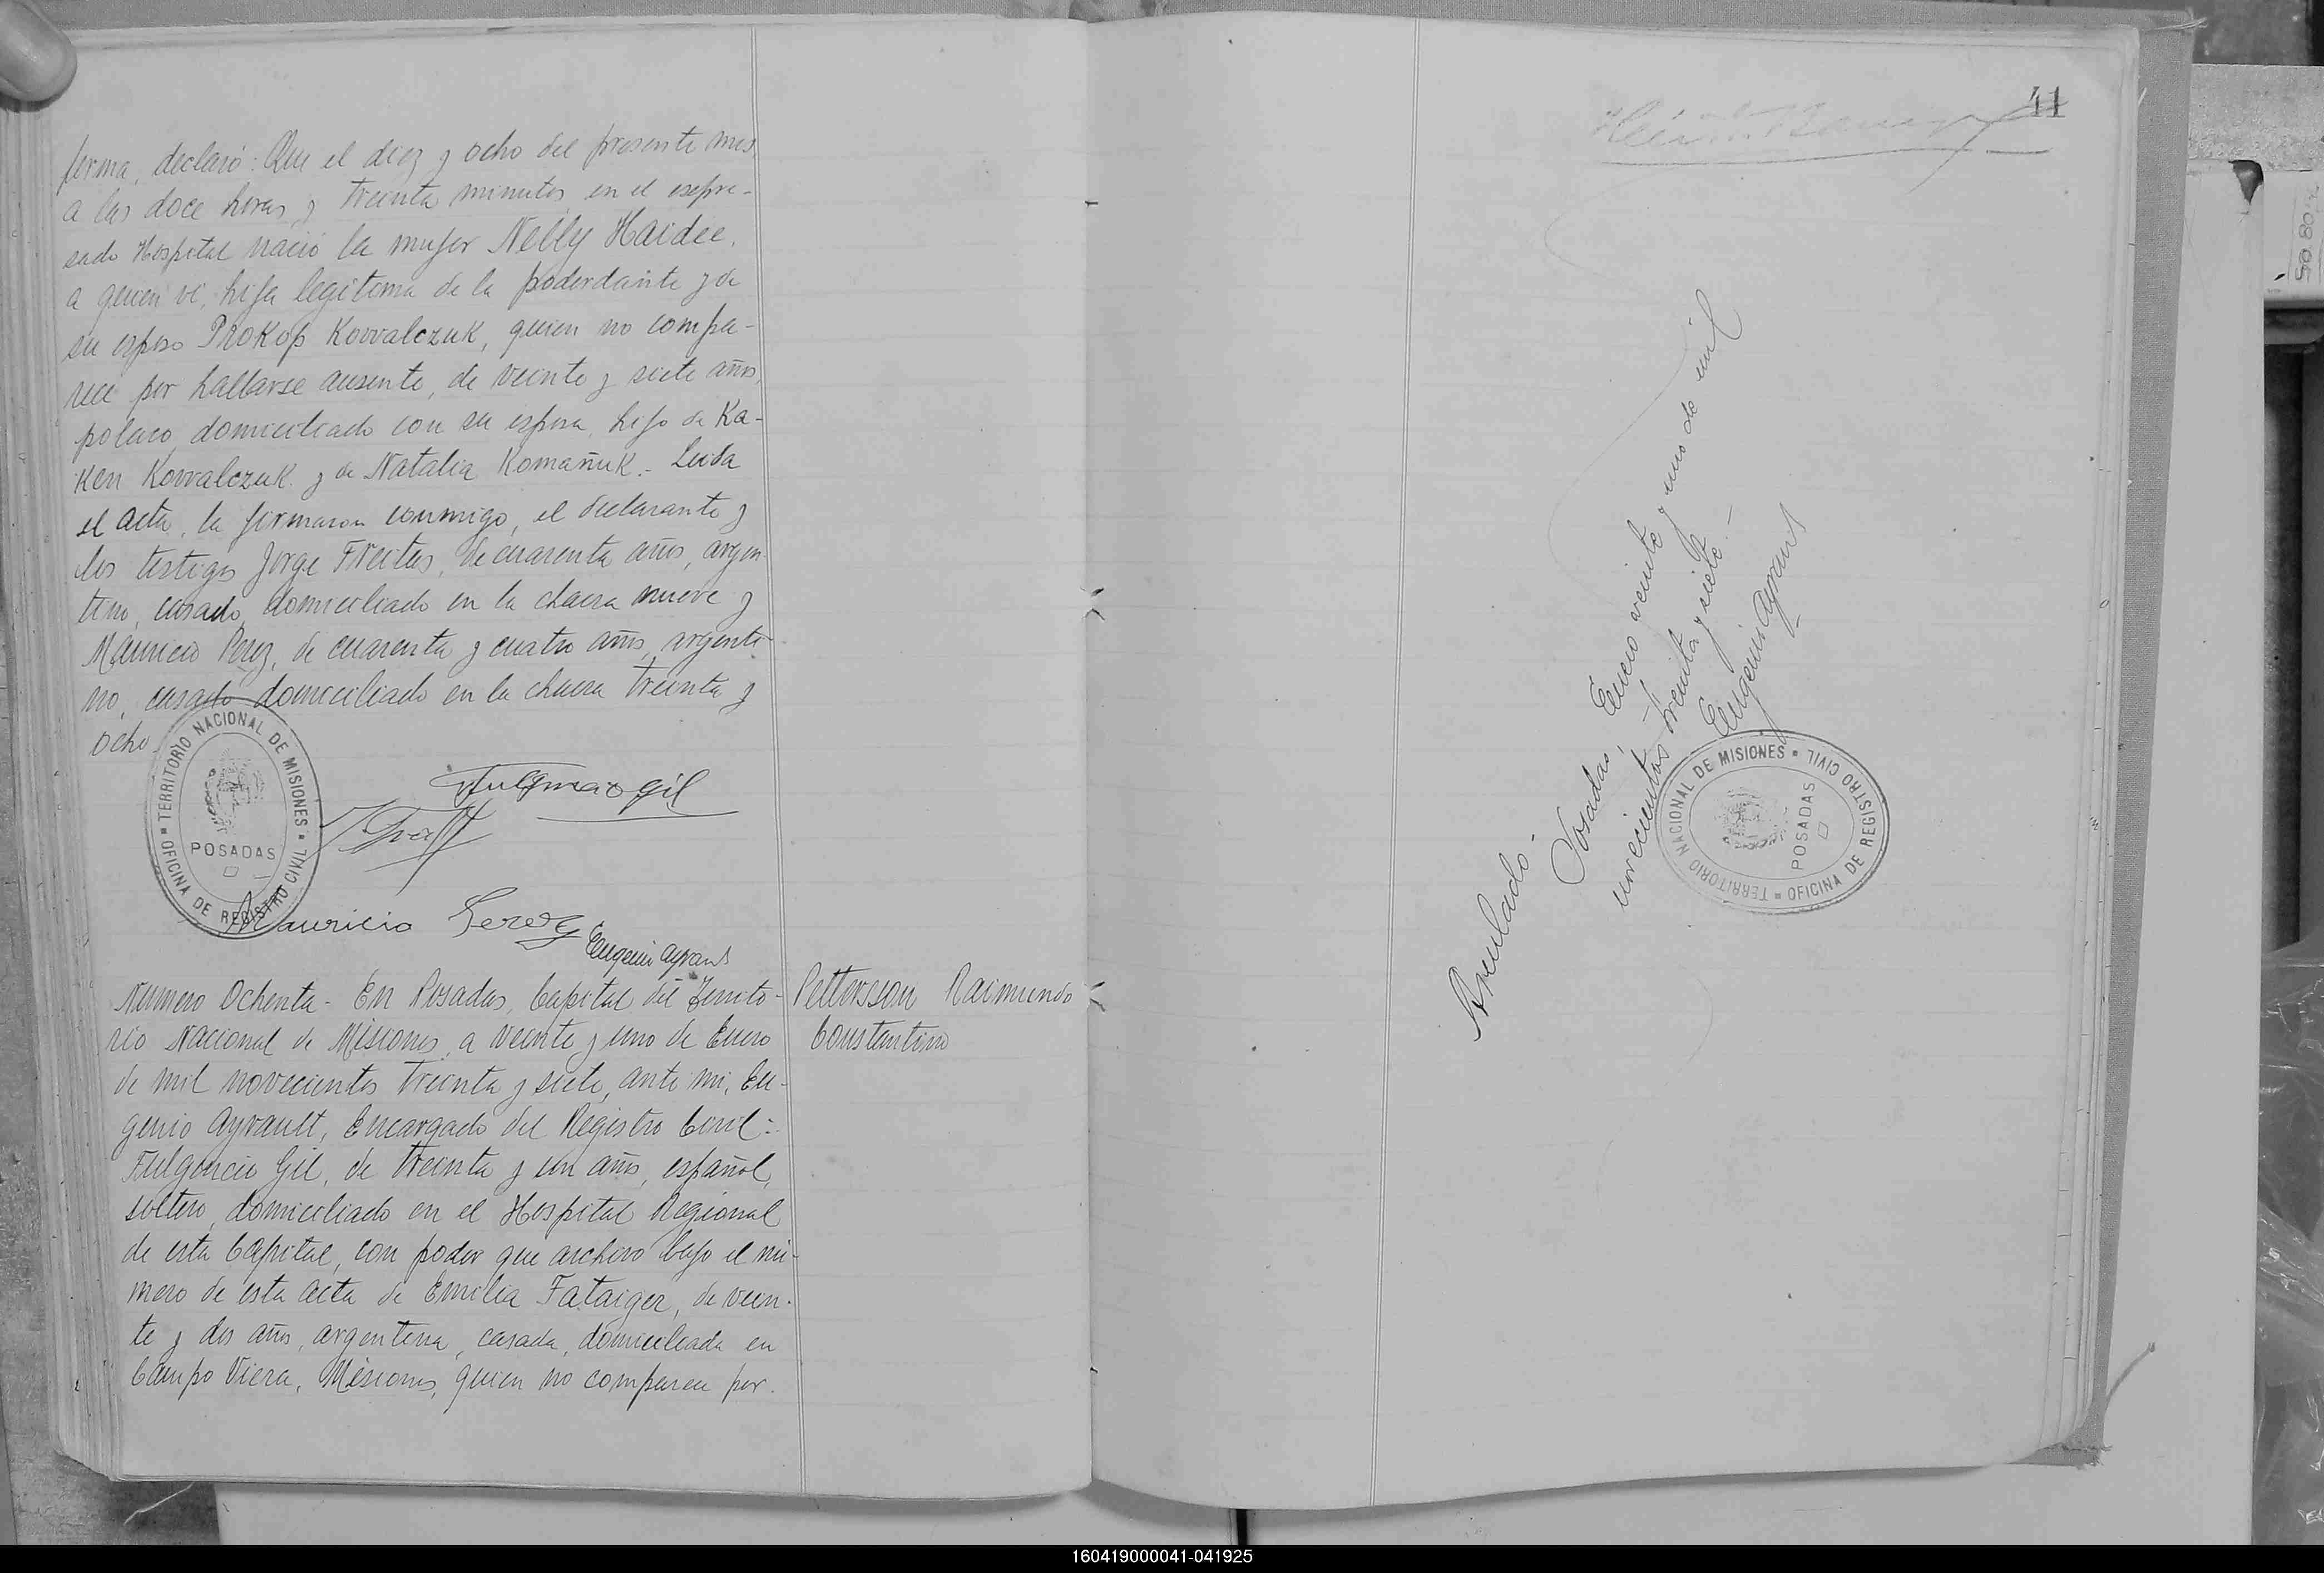 forma, declaró: Que el diez y ocho del presente mes,
a las doce horas y treinta minutos, en el expre-
sado Hospital nació la mujer Nelly Haidee,
a quien ví, hija legítima de la poderdante y de
su esposo Prokop Kowalczuk, quien no compa-
rece por hallarse ausente, de veinte y siete años,
polaco, domiciliado con su esposa, hijo de Ka-
ken Kowalczuk y de Natalia Komañuk.- Leida
el acta, la firmaron conmigo, el declarante y
los testigos Jorge Freites, de cuarenta años, argen-
tino, casado, domiciliado en la chacra nueve y
Mauricio Perez, de cuarenta y cuatro años, argenti-
no, casado domiciliado en la chacra treinta y
ocho.-
TERRITORIO NACIONAL DE MISIONES
POSADAS
OFICINA DE REGISTRO CIVIL
Fulgencio Gil
Mauricio Perez
Eugenio Ayrault
Número Ochenta - En Posadas, Capital del Territo-
rio Nacional de Misiones, a veinte y uno de Enero
de mil novecientos treinta y siete, ante mi, Eu-
genio Ayrault, Encargado del Registro Civil:
Fulgencio Gil, de treinta y un años, español,
soltero, domiciliado en el Hospital Regional
de esta Capital, con poder que archivo bajo el nú-
mero de esta acta de Emilia Fataiger, de vein-
te y dos años, argentina, casada, domiciliada en
Campo Viera, Misiones, quien no comparece por
Pettersson Raimundo
Constantino
41
Anulado.-
Posadas, Enero veinte y uno de mil
novecientos treinta y siete.-
Eugenio Ayrault
TERRITORIO NACIONAL DE MISIONES
POSADAS
OFICINA DE REGISTRO CIVIL
160419000041-041925